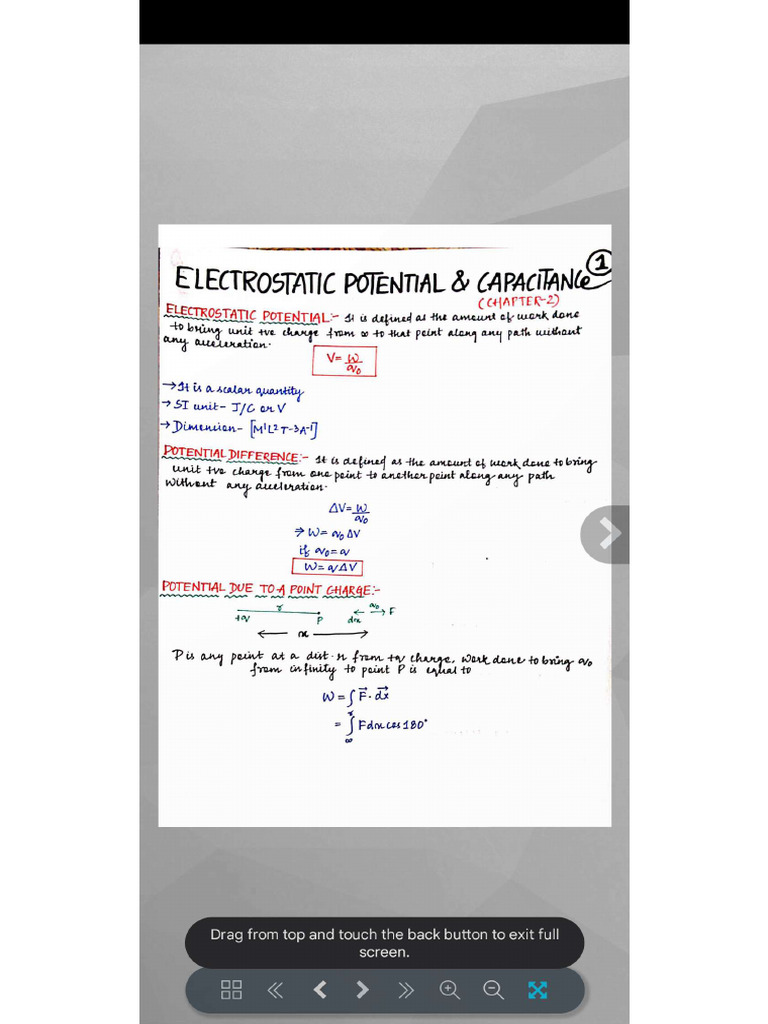 1
ELECTROSTATIC POTENTIAL & CAPACITANCE
(CHAPTER-2)
ELECTROSTATIC POTENTIAL:- It is defined as the amount of work done
to bring unit +ve charge from ∞ to that point along any path without
any acceleration.
V= W/q₀
→ It is a scalar quantity
→ SI unit- J/C or V
→ Dimension- [M¹L²T⁻³A⁻¹]
POTENTIAL DIFFERENCE:- It is defined as the amount of work done to bring
unit +ve charge from one point to another point along any path
without any acceleration.
ΔV= W/q₀
⇒ W= q₀ΔV
if q₀=q
W= qΔV
POTENTIAL DUE TO A POINT CHARGE:-
r q₀ F
+q P dx
x
P is any point at a dist. r from +q charge, work done to bring q₀
from infinity to point P is equal to
W = ∫F⃗·dx⃗
= ∫∞^r Fdx cos180°
Drag from top and touch the back button to exit full
screen.